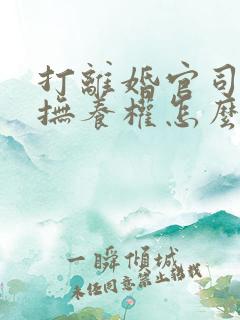 打離婚官司
撫養權怎麼
一瞬傾城
未经同意禁止轉载